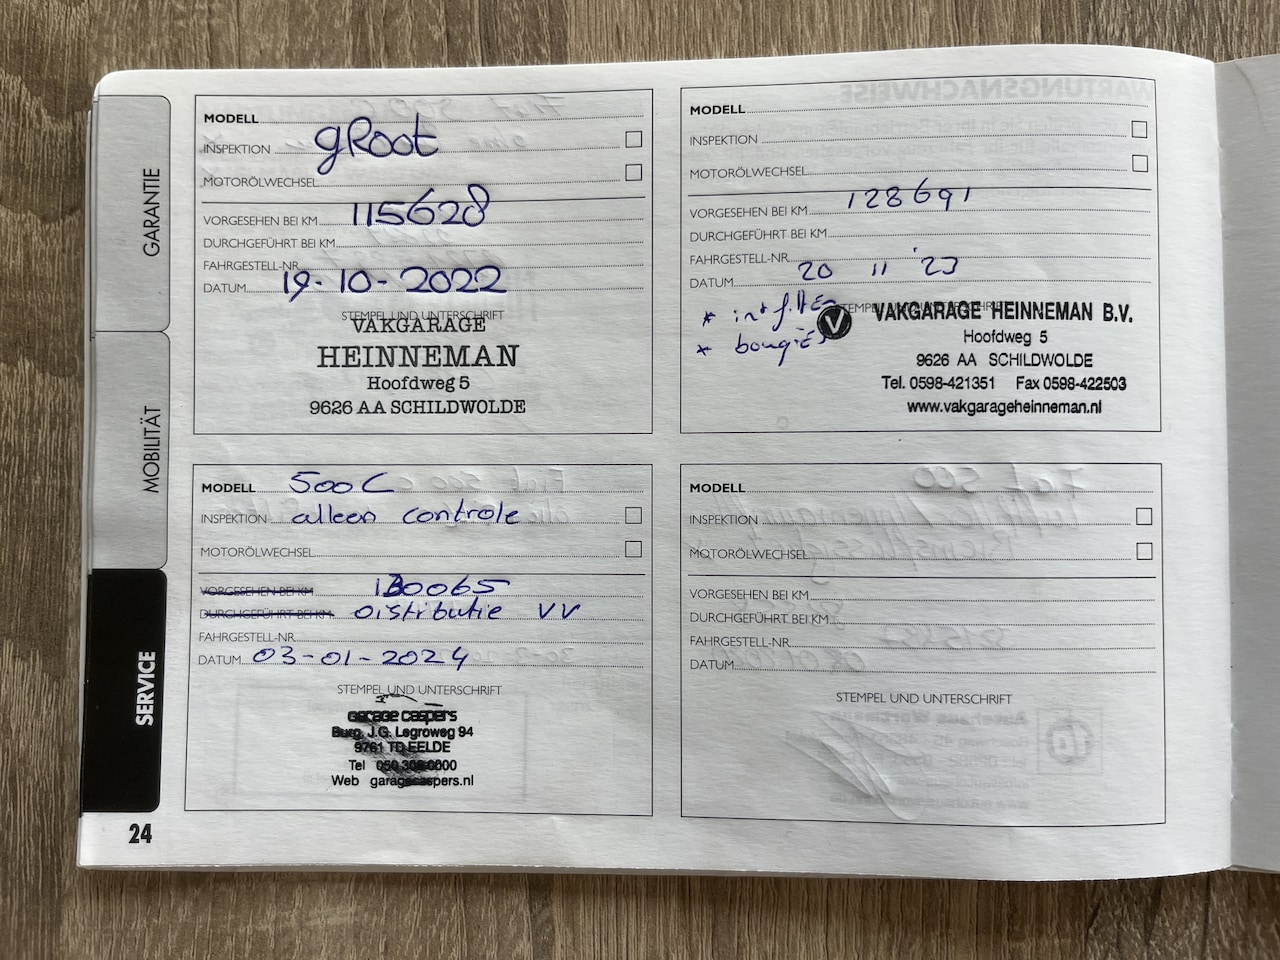 GARANTIE
MOBILITÄT
SERVICE
24
MODELL
INSPEKTION gRoot
MOTORÖLWECHSEL
VORGESEHEN BEI KM 115628
DURCHGEFÜHRT BEI KM
FAHRGESTELL-NR.
DATUM 19-10-2022
STEMPEL UND UNTERSCHRIFT
VAKGARAGE
HEINNEMAN
Hoofdweg 5
9626 AA SCHILDWOLDE
MODELL
INSPEKTION
MOTORÖLWECHSEL
VORGESEHEN BEI KM 128691
DURCHGEFÜHRT BEI KM
FAHRGESTELL-NR.
DATUM 20 11 '23
* int filter
* bougies
STEMPEL UND UNTERSCHRIFT
V VAKGARAGE HEINNEMAN B.V.
Hoofdweg 5
9626 AA SCHILDWOLDE
Tel. 0598-421351 Fax 0598-422503
www.vakgarageheinneman.nl
MODELL 500C
INSPEKTION alleen controle
MOTORÖLWECHSEL
VORGESEHEN BEI KM 130065
DURCHGEFÜHRT BEI KM Distributie VV
FAHRGESTELL-NR.
DATUM 03-01-2024
STEMPEL UND UNTERSCHRIFT
garage caspers
Burg. J.G. Legroweg 94
9761 TD EELDE
Tel 050
Web garagecaspers.nl
MODELL
INSPEKTION
MOTORÖLWECHSEL
VORGESEHEN BEI KM
DURCHGEFÜHRT BEI KM
FAHRGESTELL-NR.
DATUM
STEMPEL UND UNTERSCHRIFT